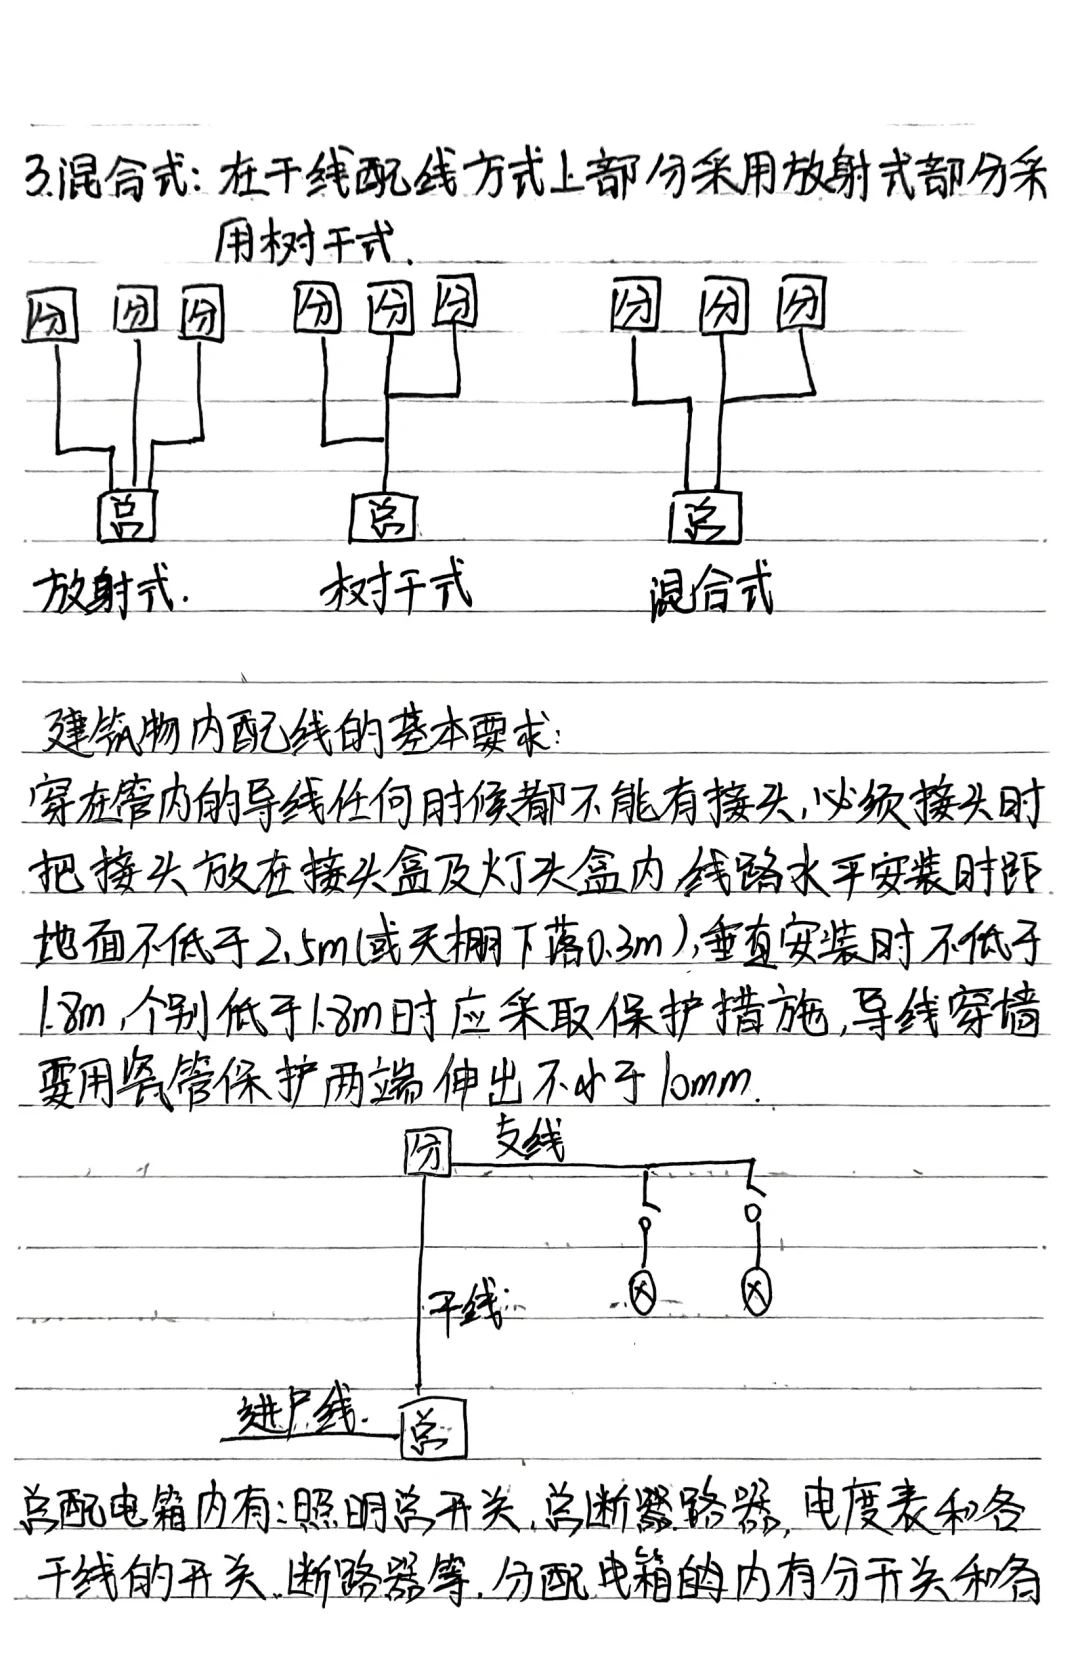 3.混合式:在干线配线方式上部分采用放射式部分采
用树干式.
分 分 分 分 分 分 分 分 分
总 总 总
放射式. 树干式 混合式
建筑物内配线的基本要求:
穿在管内的导线任何时候都不能有接头,必须接头时
把接头放在接头盒及灯头盒内,线路水平安装时距
地面不低于2.5m(或天棚下落0.3m),垂直安装时不低于
1.8m,个别低于1.8m时应采取保护措施,导线穿墙
要用瓷管保护两端伸出不小于10mm.
分 支线
干线
进户线. 总
总配电箱内有:照明总开关,总断器路器,电度表和各
干线的开关.断路器等.分配电箱的内有分开关和各